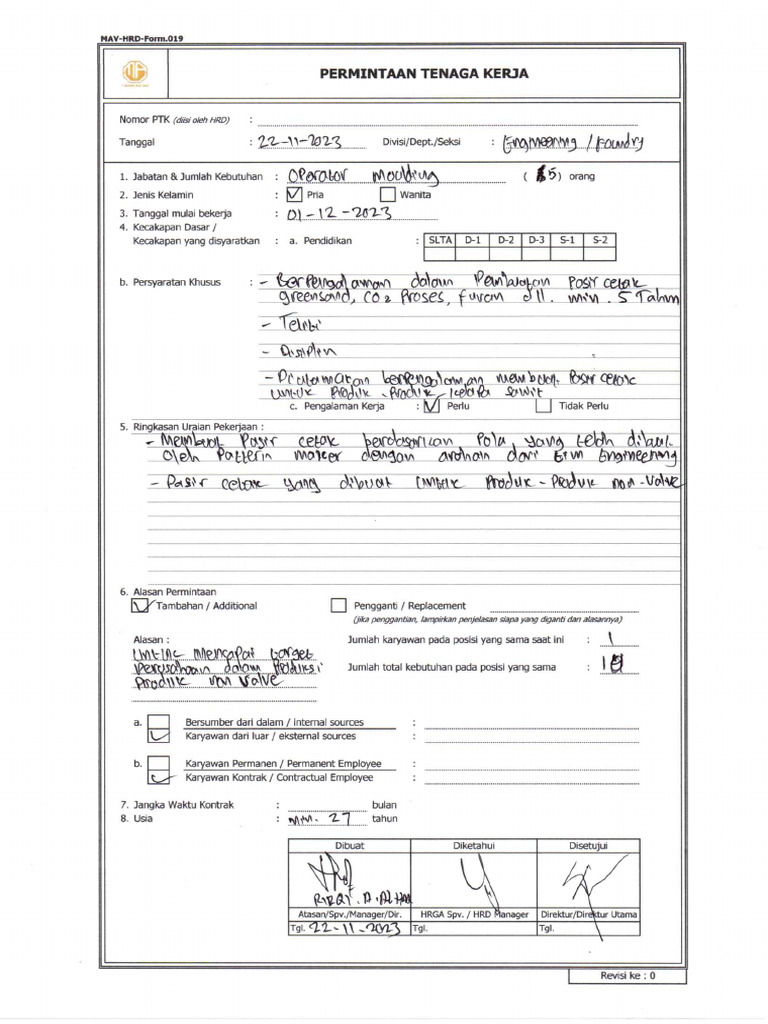 MAV-HRD-Form.019
PERMINTAAN TENAGA KERJA
Nomor PTK (diisi oleh HRD) :
Tanggal : 22-11-2023 Divisi/Dept./Seksi : Engineering / Foundry
1. Jabatan & Jumlah Kebutuhan : Operator Moulding ( 5) orang
2. Jenis Kelamin : Pria Wanita
3. Tanggal mulai bekerja : 01-12-2023
4. Kecakapan Dasar /
Kecakapan yang disyaratkan : a. Pendidikan : SLTA D-1 D-2 D-3 S-1 S-2
b. Persyaratan Khusus : - Berpengalaman dalam Pembuatan Pasir cetak
greensand, CO2 Proses, furan dll. min. 5 Tahun
- Teliti
- Disiplin
- Diutamakan berpengalaman membuat Pasir cetak
untuk Produk-Produk kelapa sawit
c. Pengalaman Kerja : Perlu Tidak Perlu
5. Ringkasan Uraian Pekerjaan :
- Membuat Pasir cetak berdasarkan Pola yang telah dibuat
oleh Pattern maker dengan arahan dari Tim Engineering
- Pasir cetak yang dibuat untuk Produk-Produk non-Valve
6. Alasan Permintaan
Tambahan / Additional Pengganti / Replacement
(jika penggantian, lampirkan penjelasan siapa yang diganti dan alasannya)
Alasan : Jumlah karyawan pada posisi yang sama saat ini : 1
Untuk mencapai target
Perusahaan dalam Produksi Jumlah total kebutuhan pada posisi yang sama :
Produk non Valve
a. Bersumber dari dalam / internal sources :
Karyawan dari luar / eksternal sources :
b. Karyawan Permanen / Permanent Employee :
Karyawan Kontrak / Contractual Employee :
7. Jangka Waktu Kontrak : bulan
8. Usia : min. 27 tahun
Dibuat Diketahui Disetujui
Atasan/Spv./Manager/Dir. HRGA Spv. / HRD Manager Direktur/Direktur Utama
Tgl. 22-11-2023 Tgl. Tgl.
Revisi ke : 0